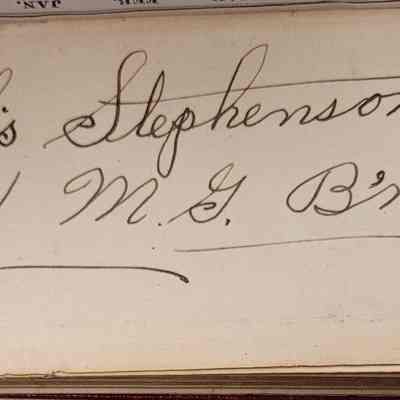 JAN.
's Stephenson
M. G. B'n